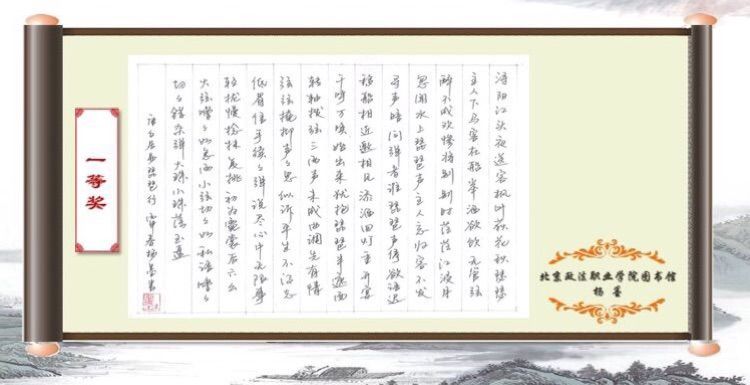 一等奖
浔阳江头夜送客枫叶荻花秋瑟瑟
主人下马客在船举酒欲饮无管弦
醉不成欢惨将别别时茫茫江浸月
忽闻水上琵琶声主人忘归客不发
寻声暗问弹者谁琵琶声停欲语迟
移船相近邀相见添酒回灯重开宴
千呼万唤始出来犹抱琵琶半遮面
转轴拨弦三两声未成曲调先有情
弦弦掩抑声々思似诉平生不得志
低眉信手续々弹说尽心中无限事
轻拢慢捻抹复挑初为霓裳后六幺
大弦嘈々如急雨小弦切々如私语嘈々
切々错杂弹大珠小珠落玉盘
白居易琵琶行 申春杨墨书
北京政法职业学院图书馆
杨墨